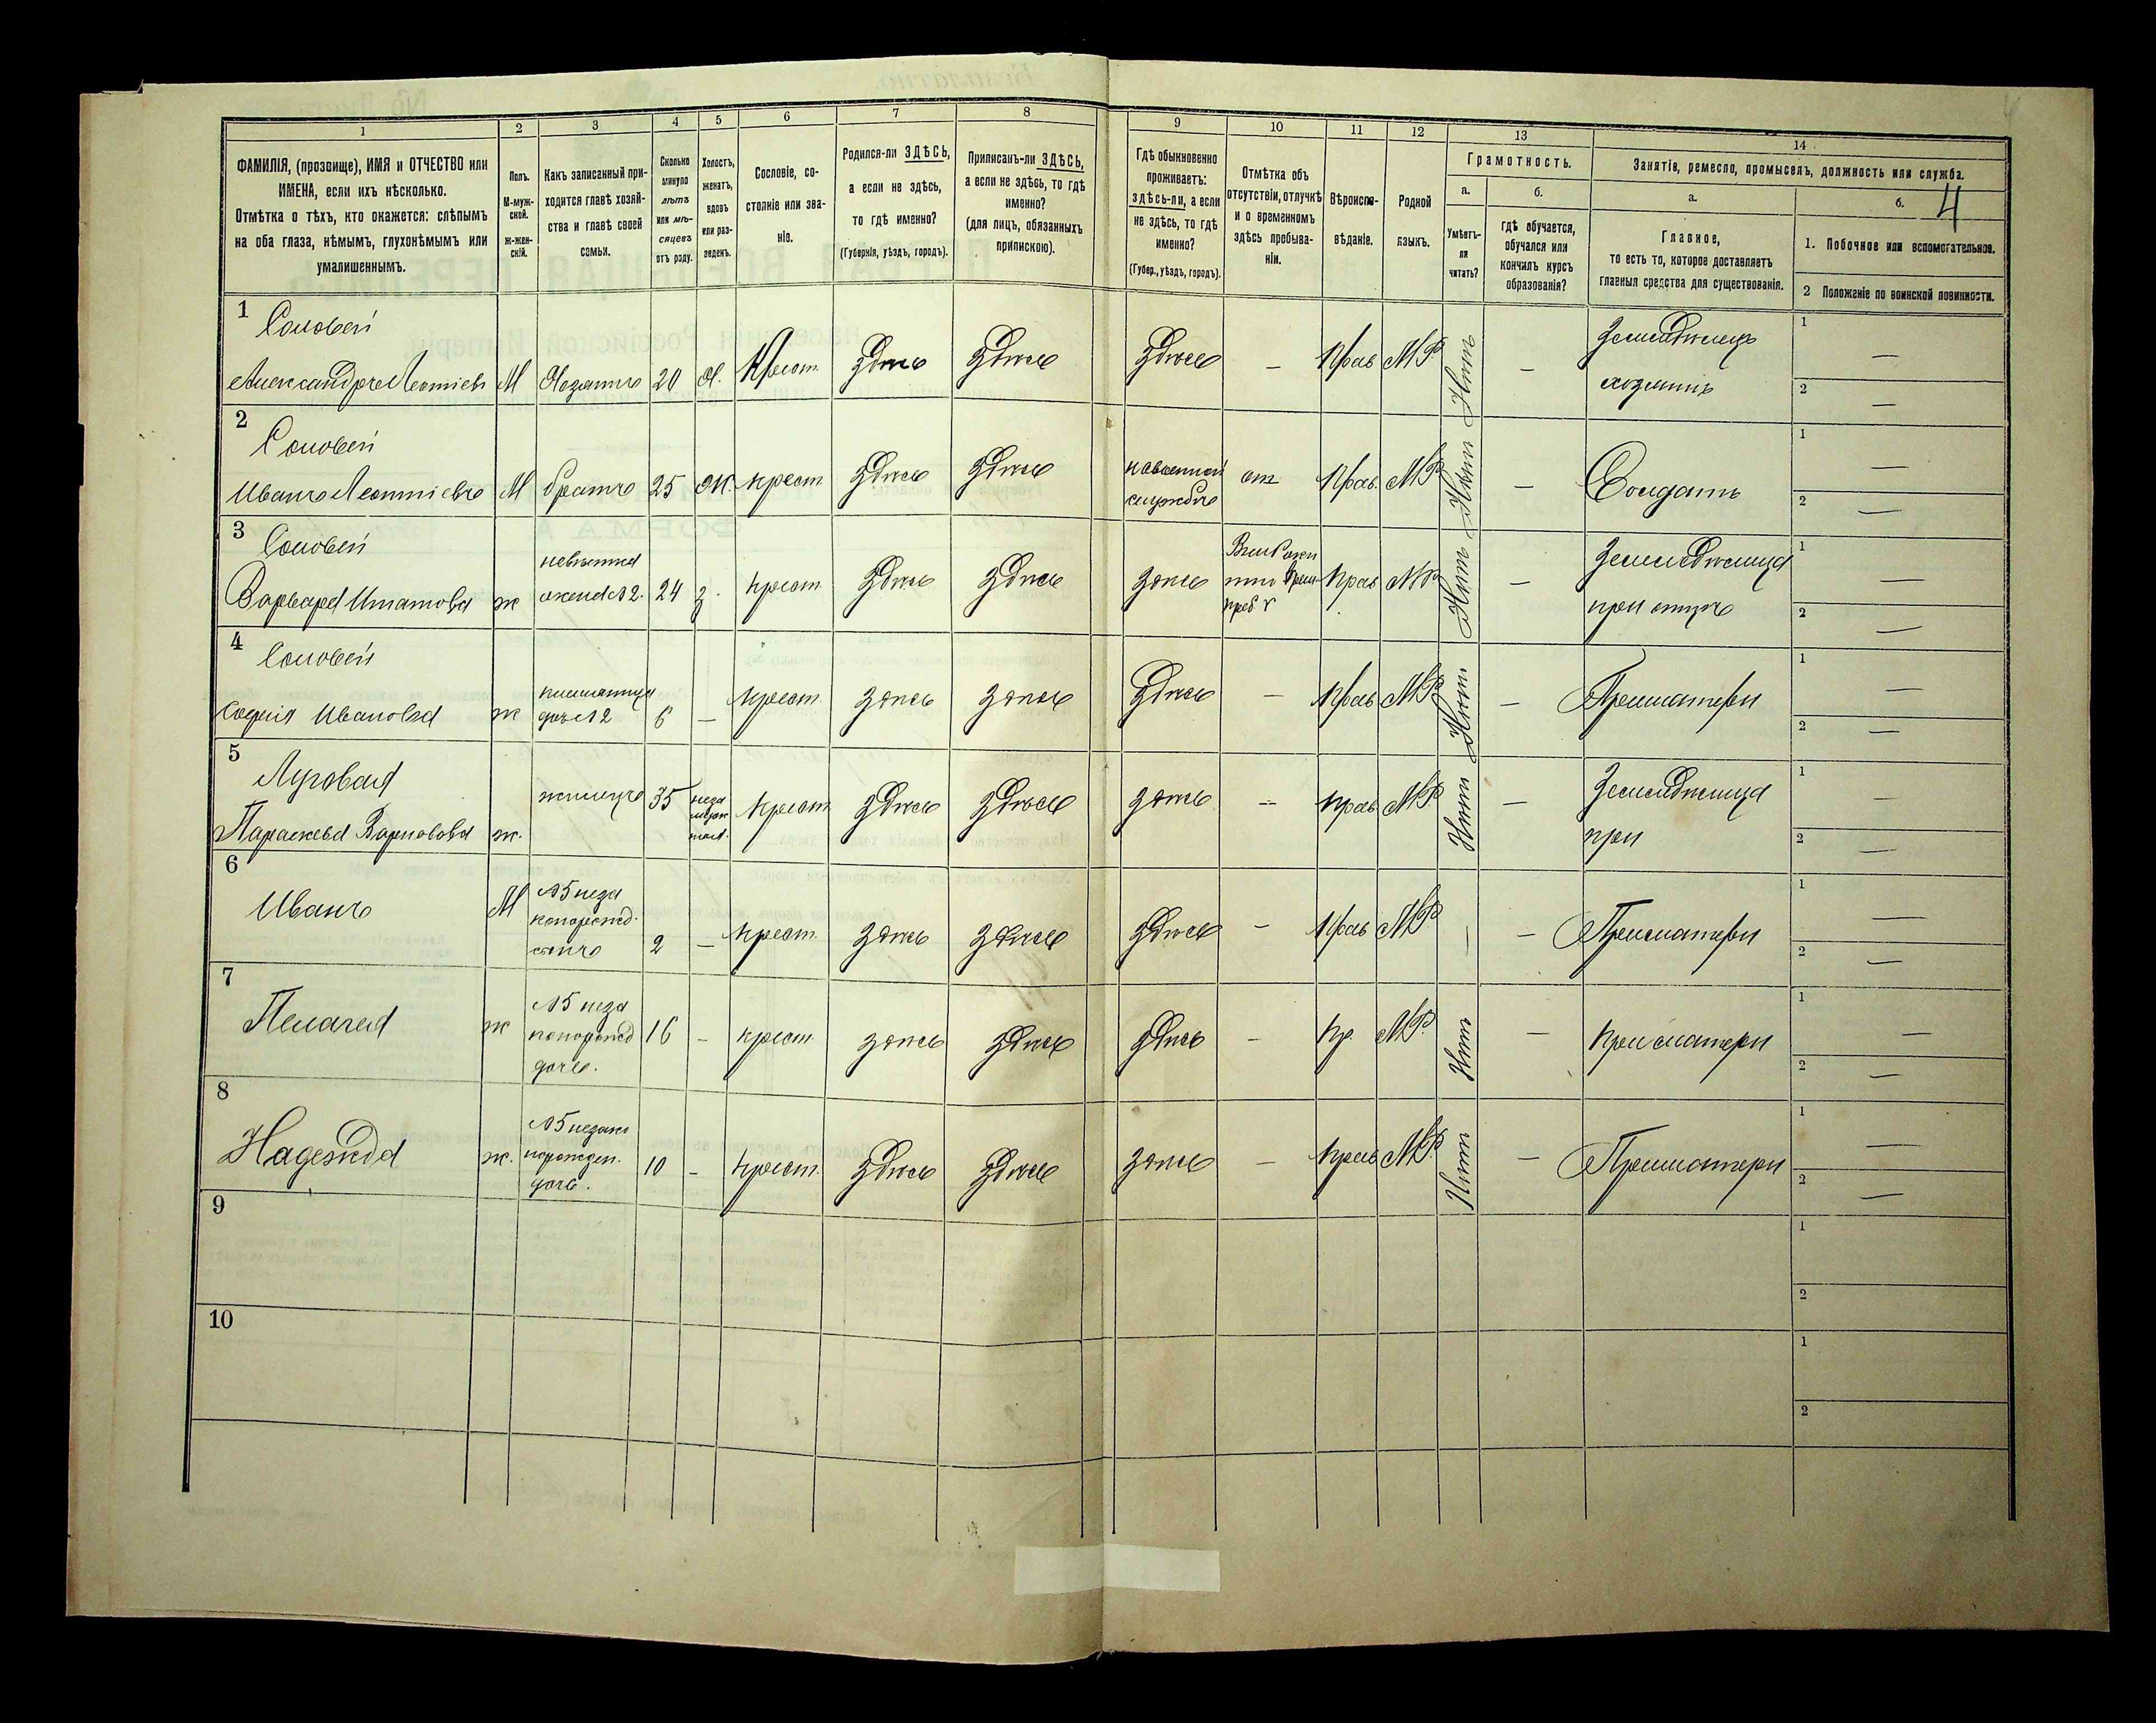 1 2 3 4 5 6 7 8 9 10 11 12 13 14
ФАМИЛІЯ, (прозвище), ИМЯ и ОТЧЕСТВО или
ИМЕНА, если ихъ нѣсколько.
Отмѣтка о тѣхъ, кто окажется: слѣпымъ
на оба глаза, нѣмымъ, глухонѣмымъ или
умалишеннымъ.
Полъ.
М-муж-
ской.
ж-жен-
скій.
Какъ записанный при-
ходится главѣ хозяй-
ства и главѣ своей
семьи.
Сколько
минуло
лѣтъ
или мѣ-
сяцевъ
отъ роду.
Холостъ,
женатъ,
вдовъ
или раз-
веденъ.
Сословіе, со-
стояніе или зва-
ніе.
Родился-ли ЗДѢСЬ,
а если не здѣсь,
то гдѣ именно?
(Губернія, уѣздъ, городъ).
Приписанъ-ли ЗДѢСЬ,
а если не здѣсь, то гдѣ
именно?
(для лицъ, обязанныхъ
припискою).
Гдѣ обыкновенно
проживаетъ:
здѣсь-ли, а если
не здѣсь, то гдѣ
именно?
(Губер., уѣздъ, городъ).
Отмѣтка объ
отсутствіи, отлучкѣ
и о временномъ
здѣсь пребыва-
ніи.
Вѣроиспо-
вѣданіе.
Родной
языкъ.
Грамотность.
а.
Умѣетъ-
ли
читать?
б.
гдѣ обучается,
обучался или
кончилъ курсъ
образованія?
Занятіе, ремесло, промыселъ, должность или служба.
а.
Главное,
то есть то, которое доставляетъ
главныя средства для существованія.
б.
4
1. Побочное или вспомогательное.
2 Положеніе по воинской повинности.
1
Соловей
Александръ Леонтіевъ М Хозяинъ 20 х. Крест. здѣсь здѣсь здѣсь — Прав МР Нѣтъ —
Земледѣлецъ
хозяинъ
1 —
2 —
2
Соловей
Иванъ Леонтіевъ М братъ 25 ж. крест здѣсь здѣсь
на военной
службѣ
от Прав. МР Нѣтъ — Солдатъ
1 —
2 —
3
Соловей
Варвара ж
невѣстка
жена №2. 24 з. крест здѣсь здѣсь здѣсь
Прав МР Нѣтъ —
Земледѣлица
при
1 —
2 —
4
Соловей
Софія Иванова ж
племянница
дочь №2 6 — Крест здѣсь здѣсь здѣсь — Прав МР Нѣтъ — При матери
1 —
2 —
5
Луговая
Параскева ж.
жилица 35
неза
муж
няя. Крест здѣсь здѣсь здѣсь — прав МР Нѣтъ —
Земледѣлица
при
1 —
2 —
6
Иванъ М
№5 неза
конорожд.
сынъ 2 — крест здѣсь здѣсь здѣсь — Прав МР — — При матери
1 —
2 —
7
Пелагея ж
№5 неза
конорожд
дочь. 16 — крест. здѣсь здѣсь здѣсь — пр. МР. Нѣтъ — При матери
1 —
2 —
8
Надежда ж.
№5 незако
норожден.
дочь. 10 — крест. здѣсь здѣсь здѣсь — прав МР Нѣтъ — При матери
1 —
2 —
9
1
2
10
1
2